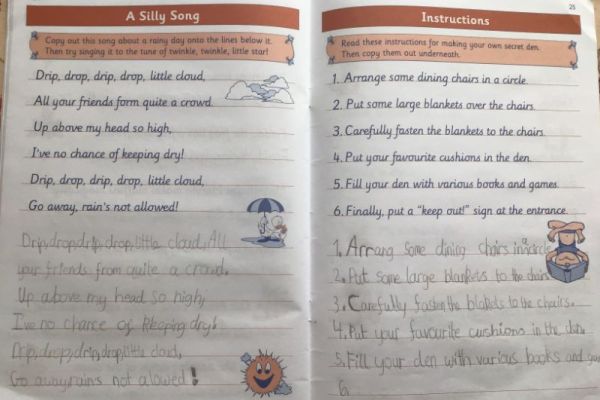 A Silly Song
Copy out this song about a rainy day onto the lines below it.
Then try singing it to the tune of twinkle, twinkle, little star!
Drip, drop, drip, drop, little cloud,
All your friends form quite a crowd.
Up above my head so high,
I've no chance of keeping dry!
Drip, drop, drip, drop, little cloud,
Go away, rain's not allowed!
Drip, drop, drip, drop, little cloud, All
your friends from quite a crowd.
Up above my head so high,
I've no chance of keeping dry!
Drip, drop, drip, drop, little cloud,
Go away, rains not alowed!
25
Instructions
Read these instructions for making your own secret den.
Then copy them out underneath.
1. Arrange some dining chairs in a circle.
2. Put some large blankets over the chairs.
3. Carefully fasten the blankets to the chairs.
4. Put your favourite cushions in the den.
5. Fill your den with various books and games.
6. Finally, put a "keep out!" sign at the entrance.
1. Arrang some dining chairs in a circle
2. Put some large blankets to the chairs
3. Carefully fasten the blakets to the chairs.
4. Put your favourite cushions in the den.
5. Fill your den with various books and gam
6.